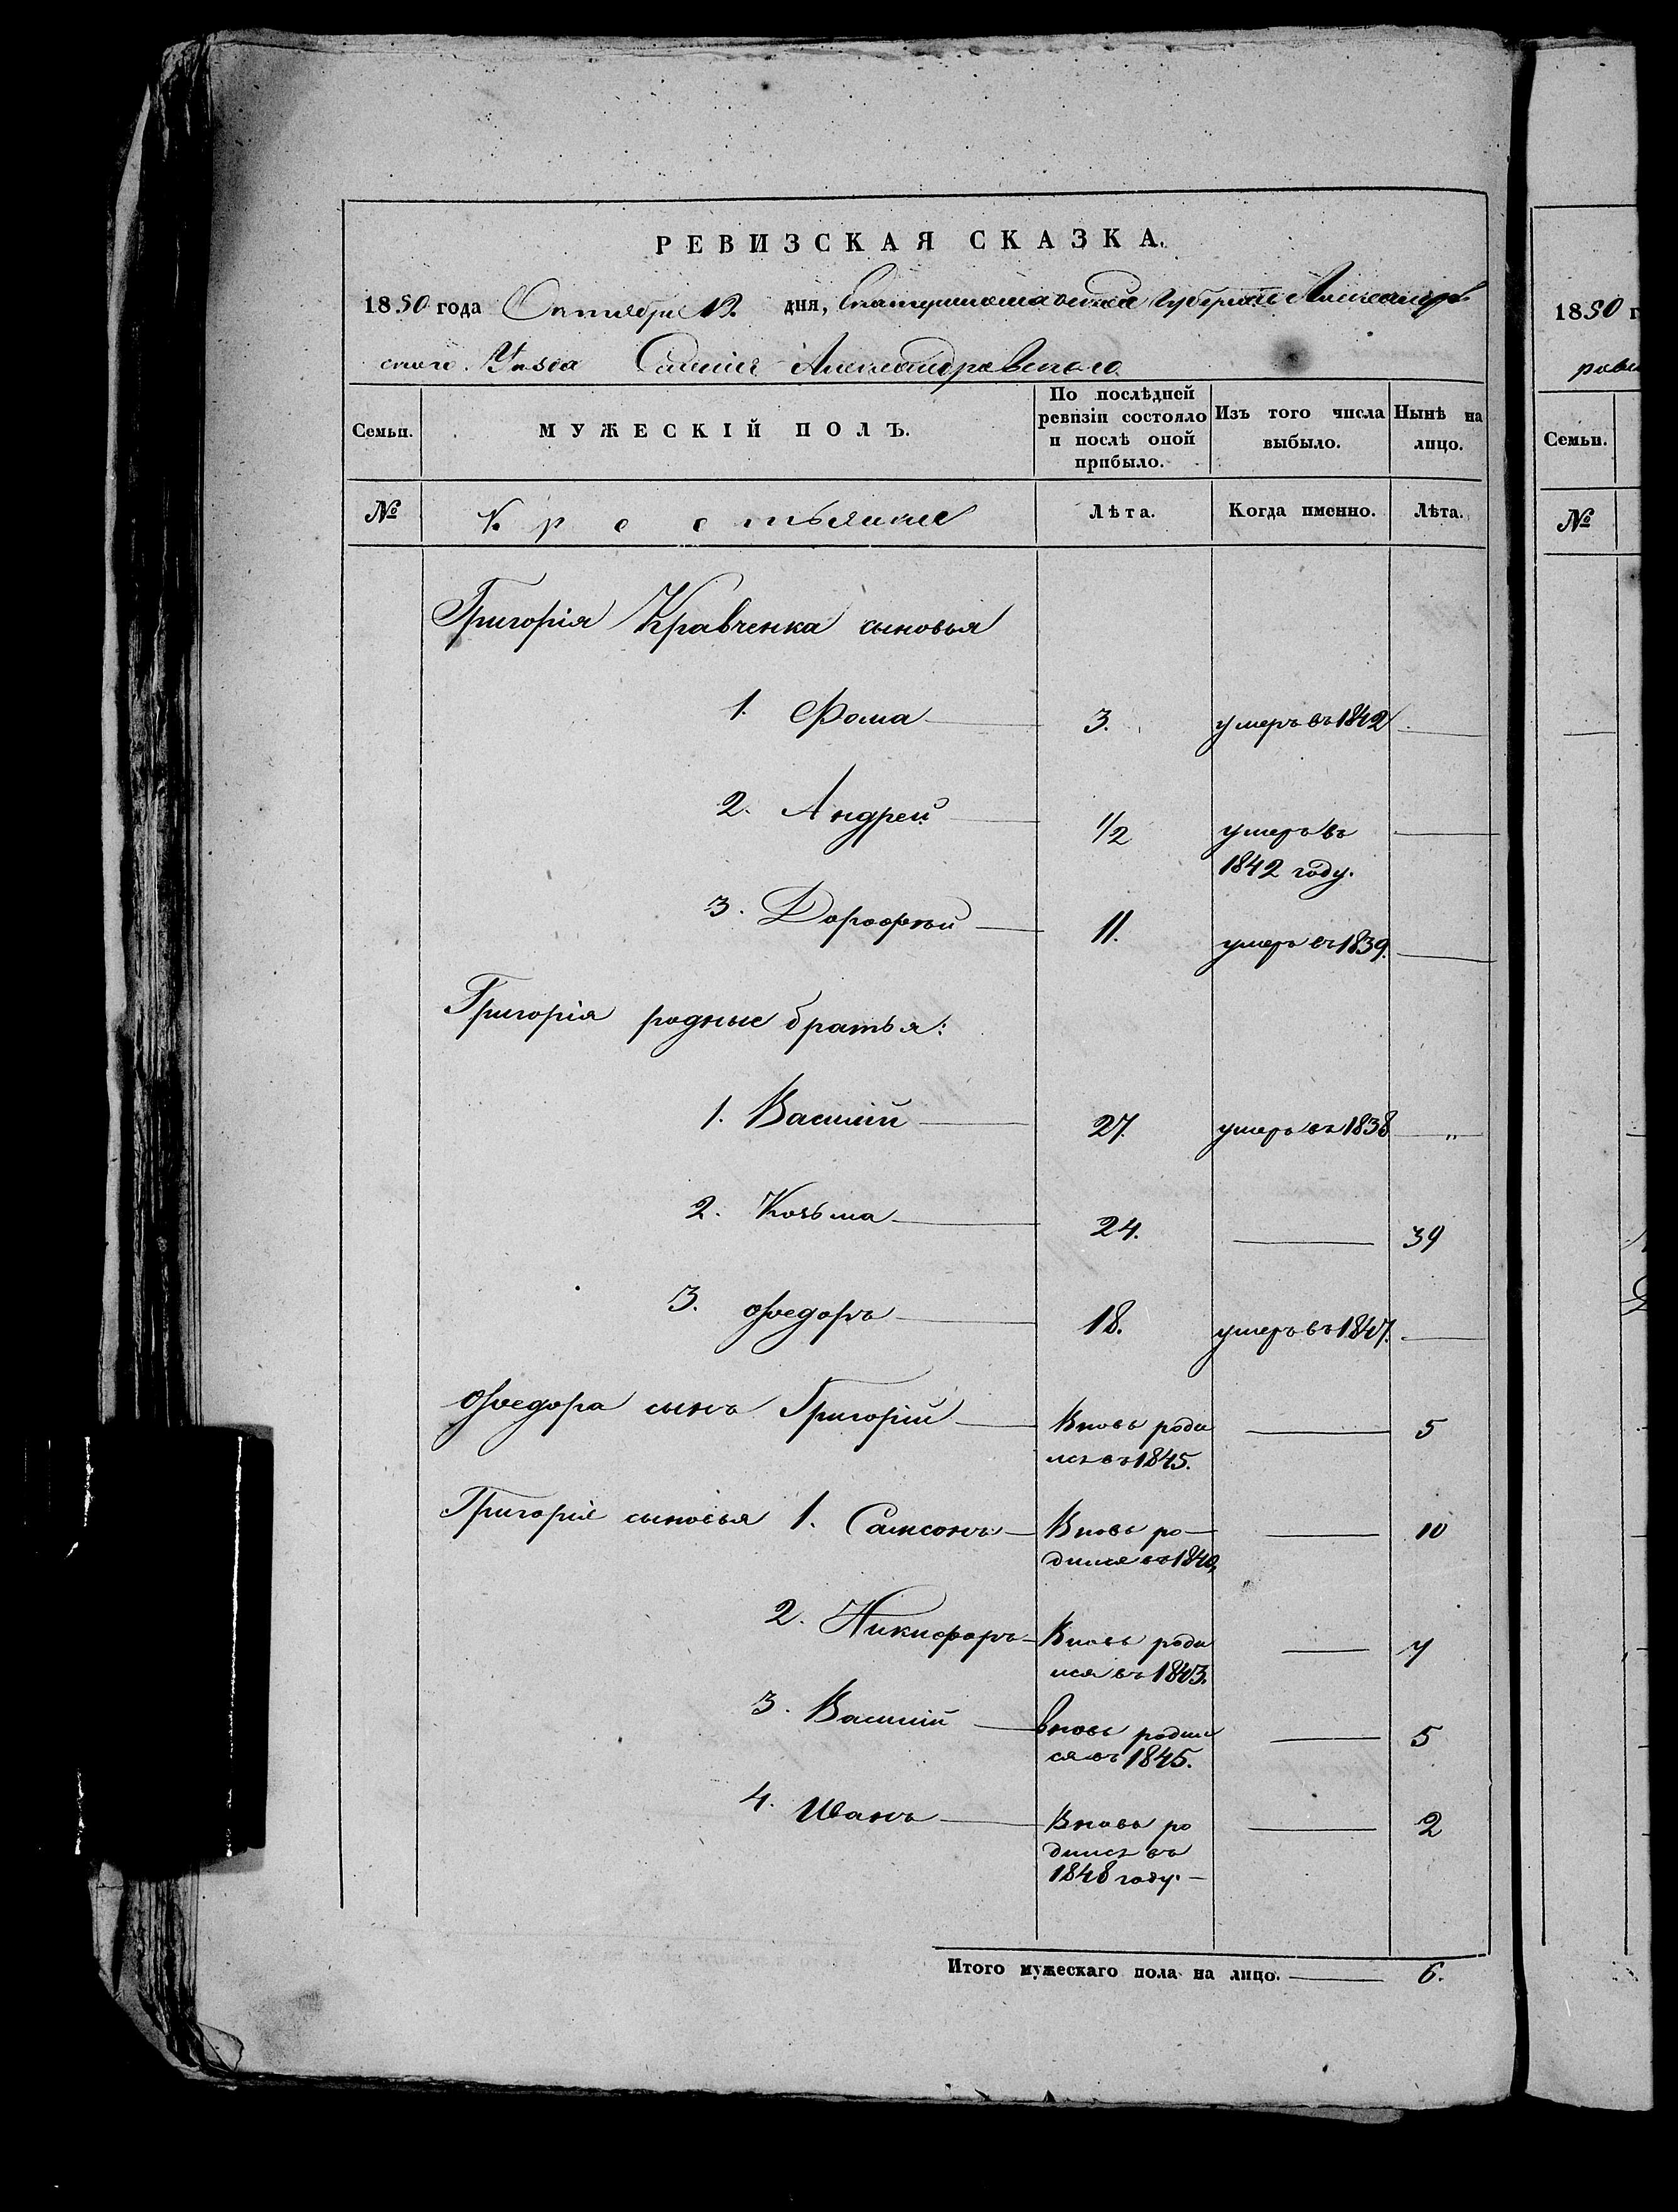 РЕВИЗСКАЯ СКАЗКА.
1850 года Октября 19. дня, Екатеринославской Губернии Александров-
скаго Уѣзда Селенія Александровскаго
Семьи. МУЖЕСКІЙ ПОЛЪ. По послѣдней ревизіи состояло и послѣ оной прибыло. Изъ того числа выбыло. Нынѣ на лицо.
№ Крестьяне Лѣта. Когда именно. Лѣта.
Григорія Кравченка сыновья
1. Фома 3. умеръ въ 1842
2. Андрей 1/2 умеръ въ
1842 году.
3. Дорофѣй 11. умеръ въ 1839.
Григорія родные братья:
1. Василій 27. умеръ въ 1838 „
2. Козьма 24. 39
3. Ѳедоръ 18. умеръ въ 1847.
Ѳедора сынъ Григорій Вновь роди
лся въ 1845. 5
Григорія сыновья 1. Самсонъ Вновь ро-
дился въ 1840, 10
2. Никифоръ Вновь роди
лся въ 1843. 7
3. Василій вновь родил
ся въ 1845. 5
4. Иванъ Вновь ро
дился въ
1848 году. 2
Итого мужескаго пола на лицо. 6.
1850 г
Семьи.
№